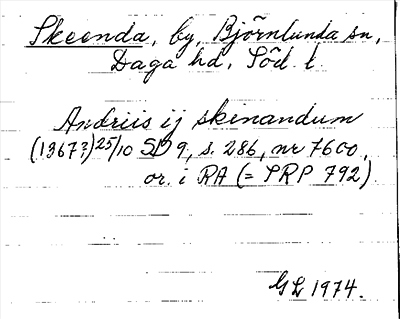 Skeenda, by, Björnlunda sn,
Daga hd, Söd. l.
Andreis ij skenandum
(1367?) 25/10 SD 9, s. 286, nr 7600,
or. i RA (= SRP 792)
GL 1974.